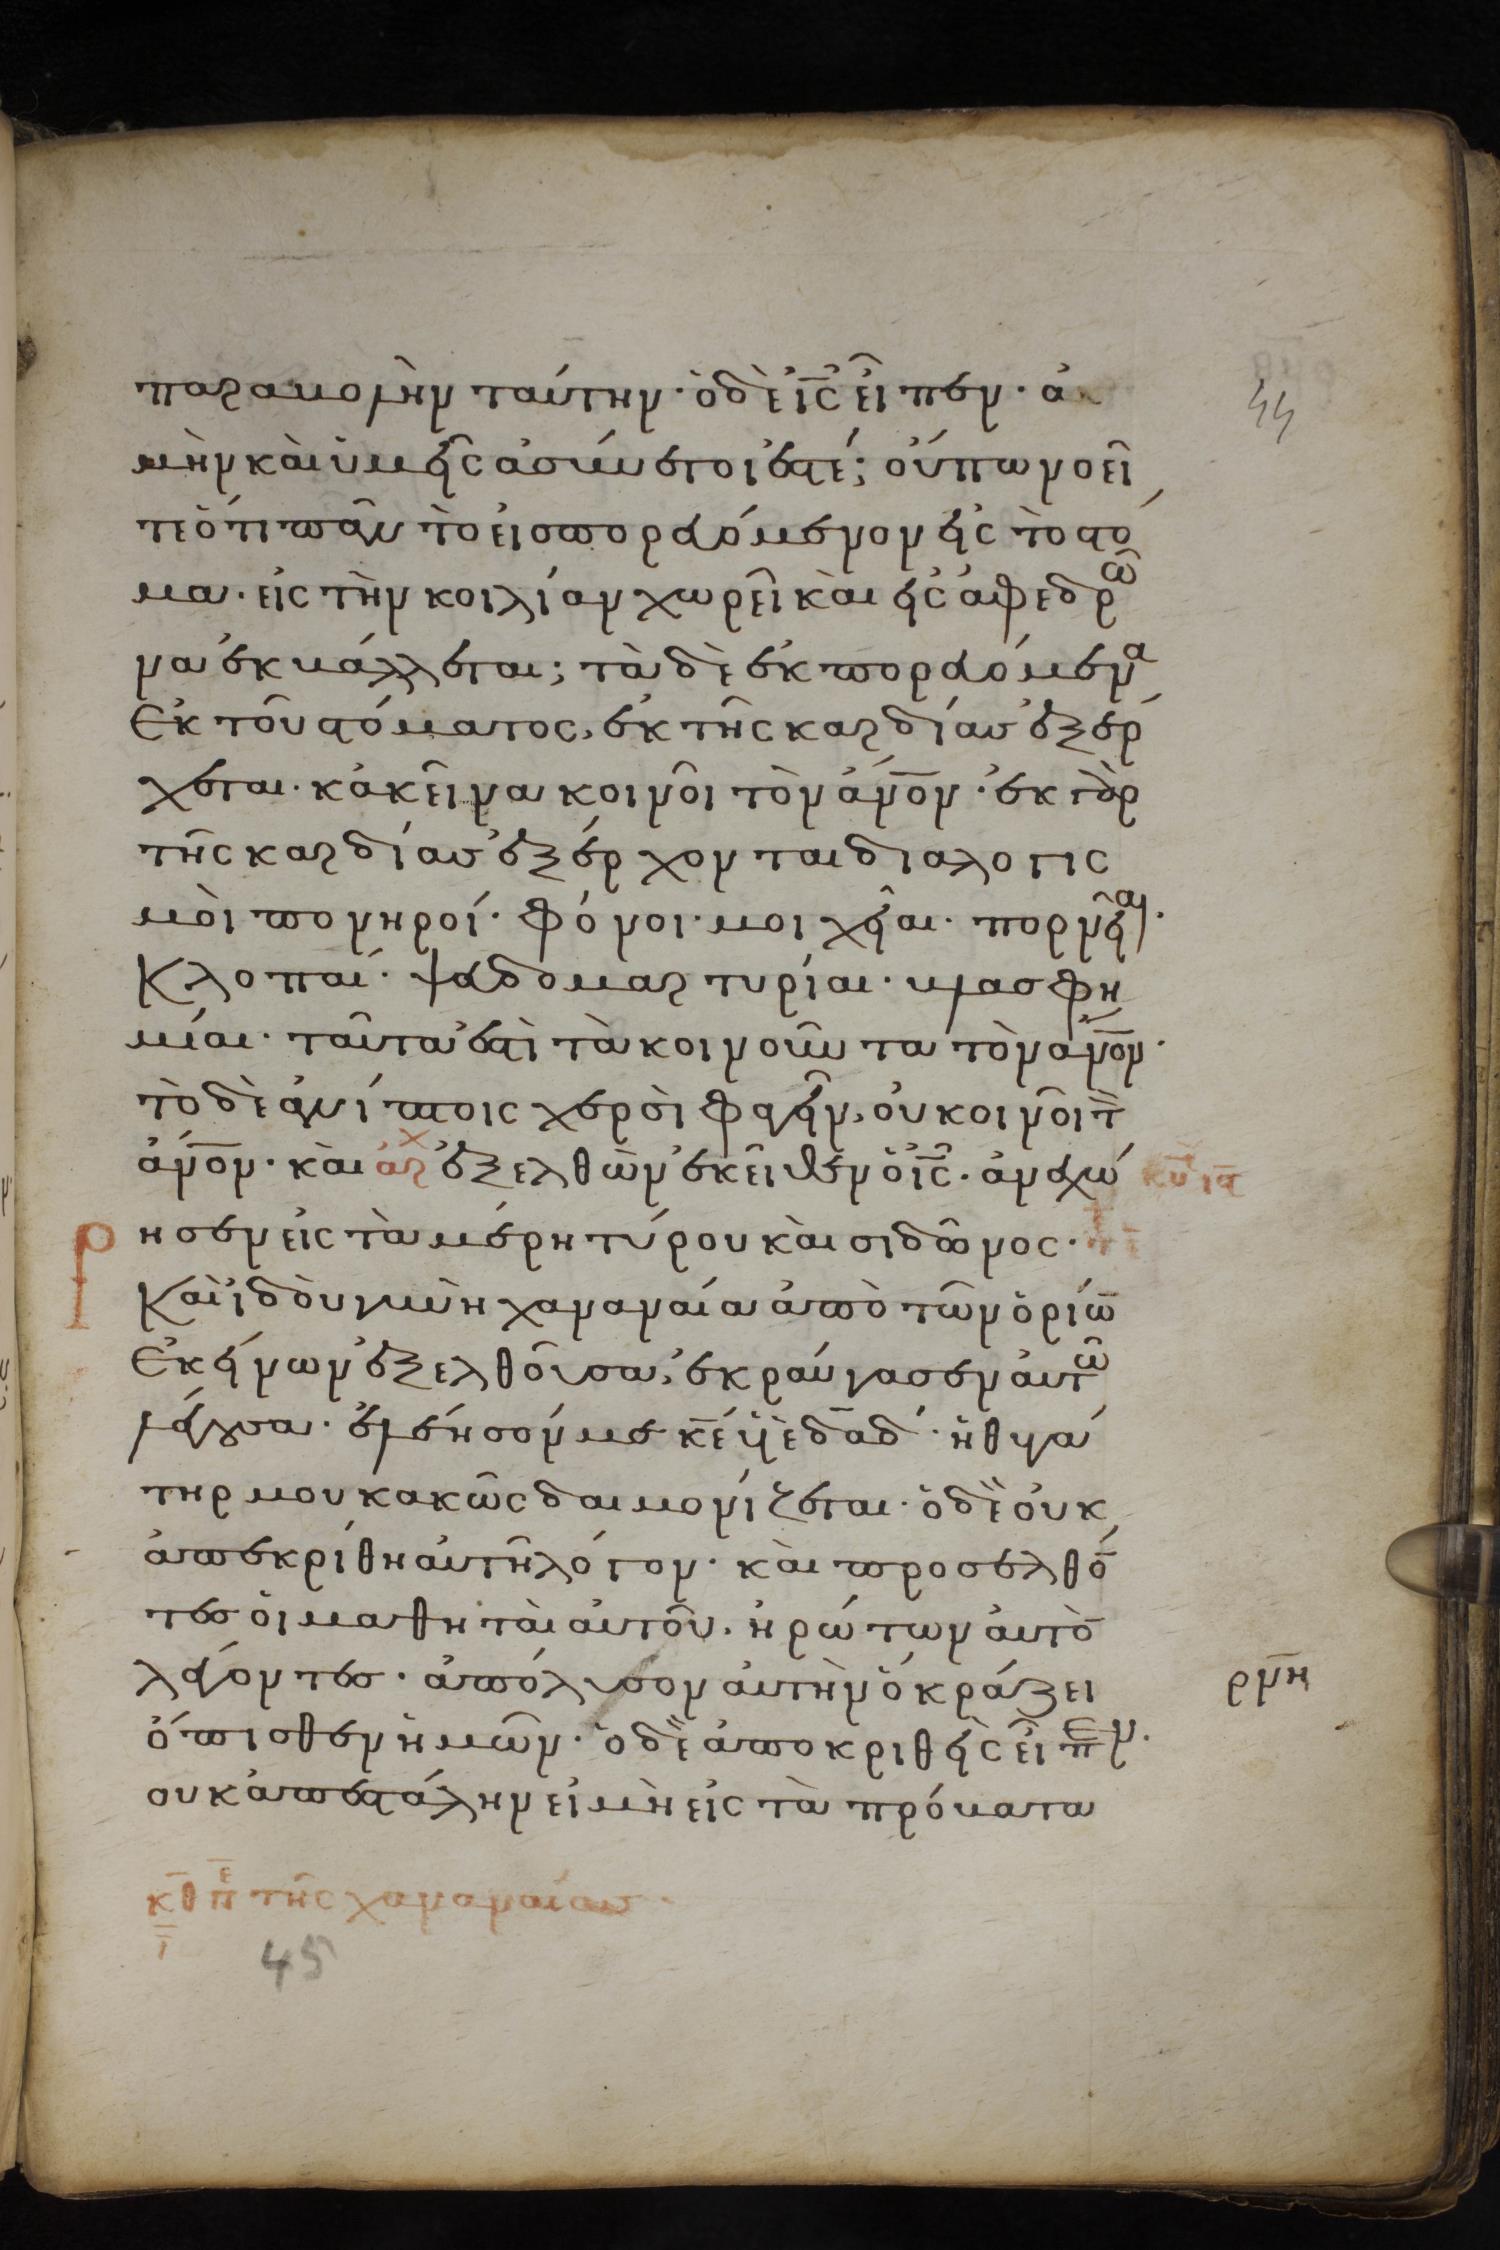 παραβολὴν ταύτην· ὁ δὲ ι̅ς̅ εἶπεν· ἀ
44
μὴν καὶ ὑμεῖς ἀσύνετοί ἐστέ; οὔπω νοεῖ
τε ὅτι πᾶν τὸ εἰσπορευόμενον εἰς τὸ στό
μα· εἰς τὴν κοιλίαν χωρεῖ καὶ εἰς ἀφεδρῶ
να ἐκβάλλεται; τὰ δὲ ἐκπορευόμενα
ἐκ τοῦ στόματος, ἐκ τῆς καρδίας ἐξέρ
χεται· κἀκεῖνα κοινοῖ τὸν α̅ν̅ο̅ν· ἐκ γὰρ
τῆς καρδίας ἐξέρχονται διαλογισ
μοὶ πονηροί· φόνοι· μοιχεῖαι· πορνεῖαι·
κλοπαί· ψευδομαρτυρίαι· βλασφη
μίαι· ταῦτα ἐστὶ τὰ κοινοῦντα τὸν α̅ν̅ο̅ν·
τὸ δὲ ἀνίπτοις χερσὶ φαγεῖν, οὐ κοινοῖ τὸν
α̅ν̅ο̅ν· καὶ αρχ ἐξελθὼν ἐκεῖθεν ὁ ι̅ς̅· ἀνεχώ
ρησεν εἰς τὰ μέρη τύρου καὶ σιδῶνος·
Καὶ ἰδοὺ γυνὴ χαναναία ἀπὸ τῶν ὁρίω̅
ἐκείνων ἐξελθοῦσα, ἐκραύγασεν αὐτῶ
λέγουσα· ἐλέησόν με κ̅ε̅ υ̅ἱὲ δ̅α̅δ̅· ἡ θυγά
τηρ μου κακῶς δαιμονίζεται· ὁ δὲ οὐκ
ἀπεκρίθη αὐτῆ λόγον· καὶ προσελθό̅
τες οἱ μαθηταὶ αὐτοῦ, ἠρώτων αὐτὸ̅
λέγοντες· ἀπόλυσον αὐτὴν ὅ κράζει
ρμη
ὄπισθεν ἡμῶν· ὁ δὲ ἀποκριθεὶς εἶπεν·
ουκ ἀπεστάλην εἰ μὴ εἰς τὰ πρόβατα
τῆς χαναναίας
45